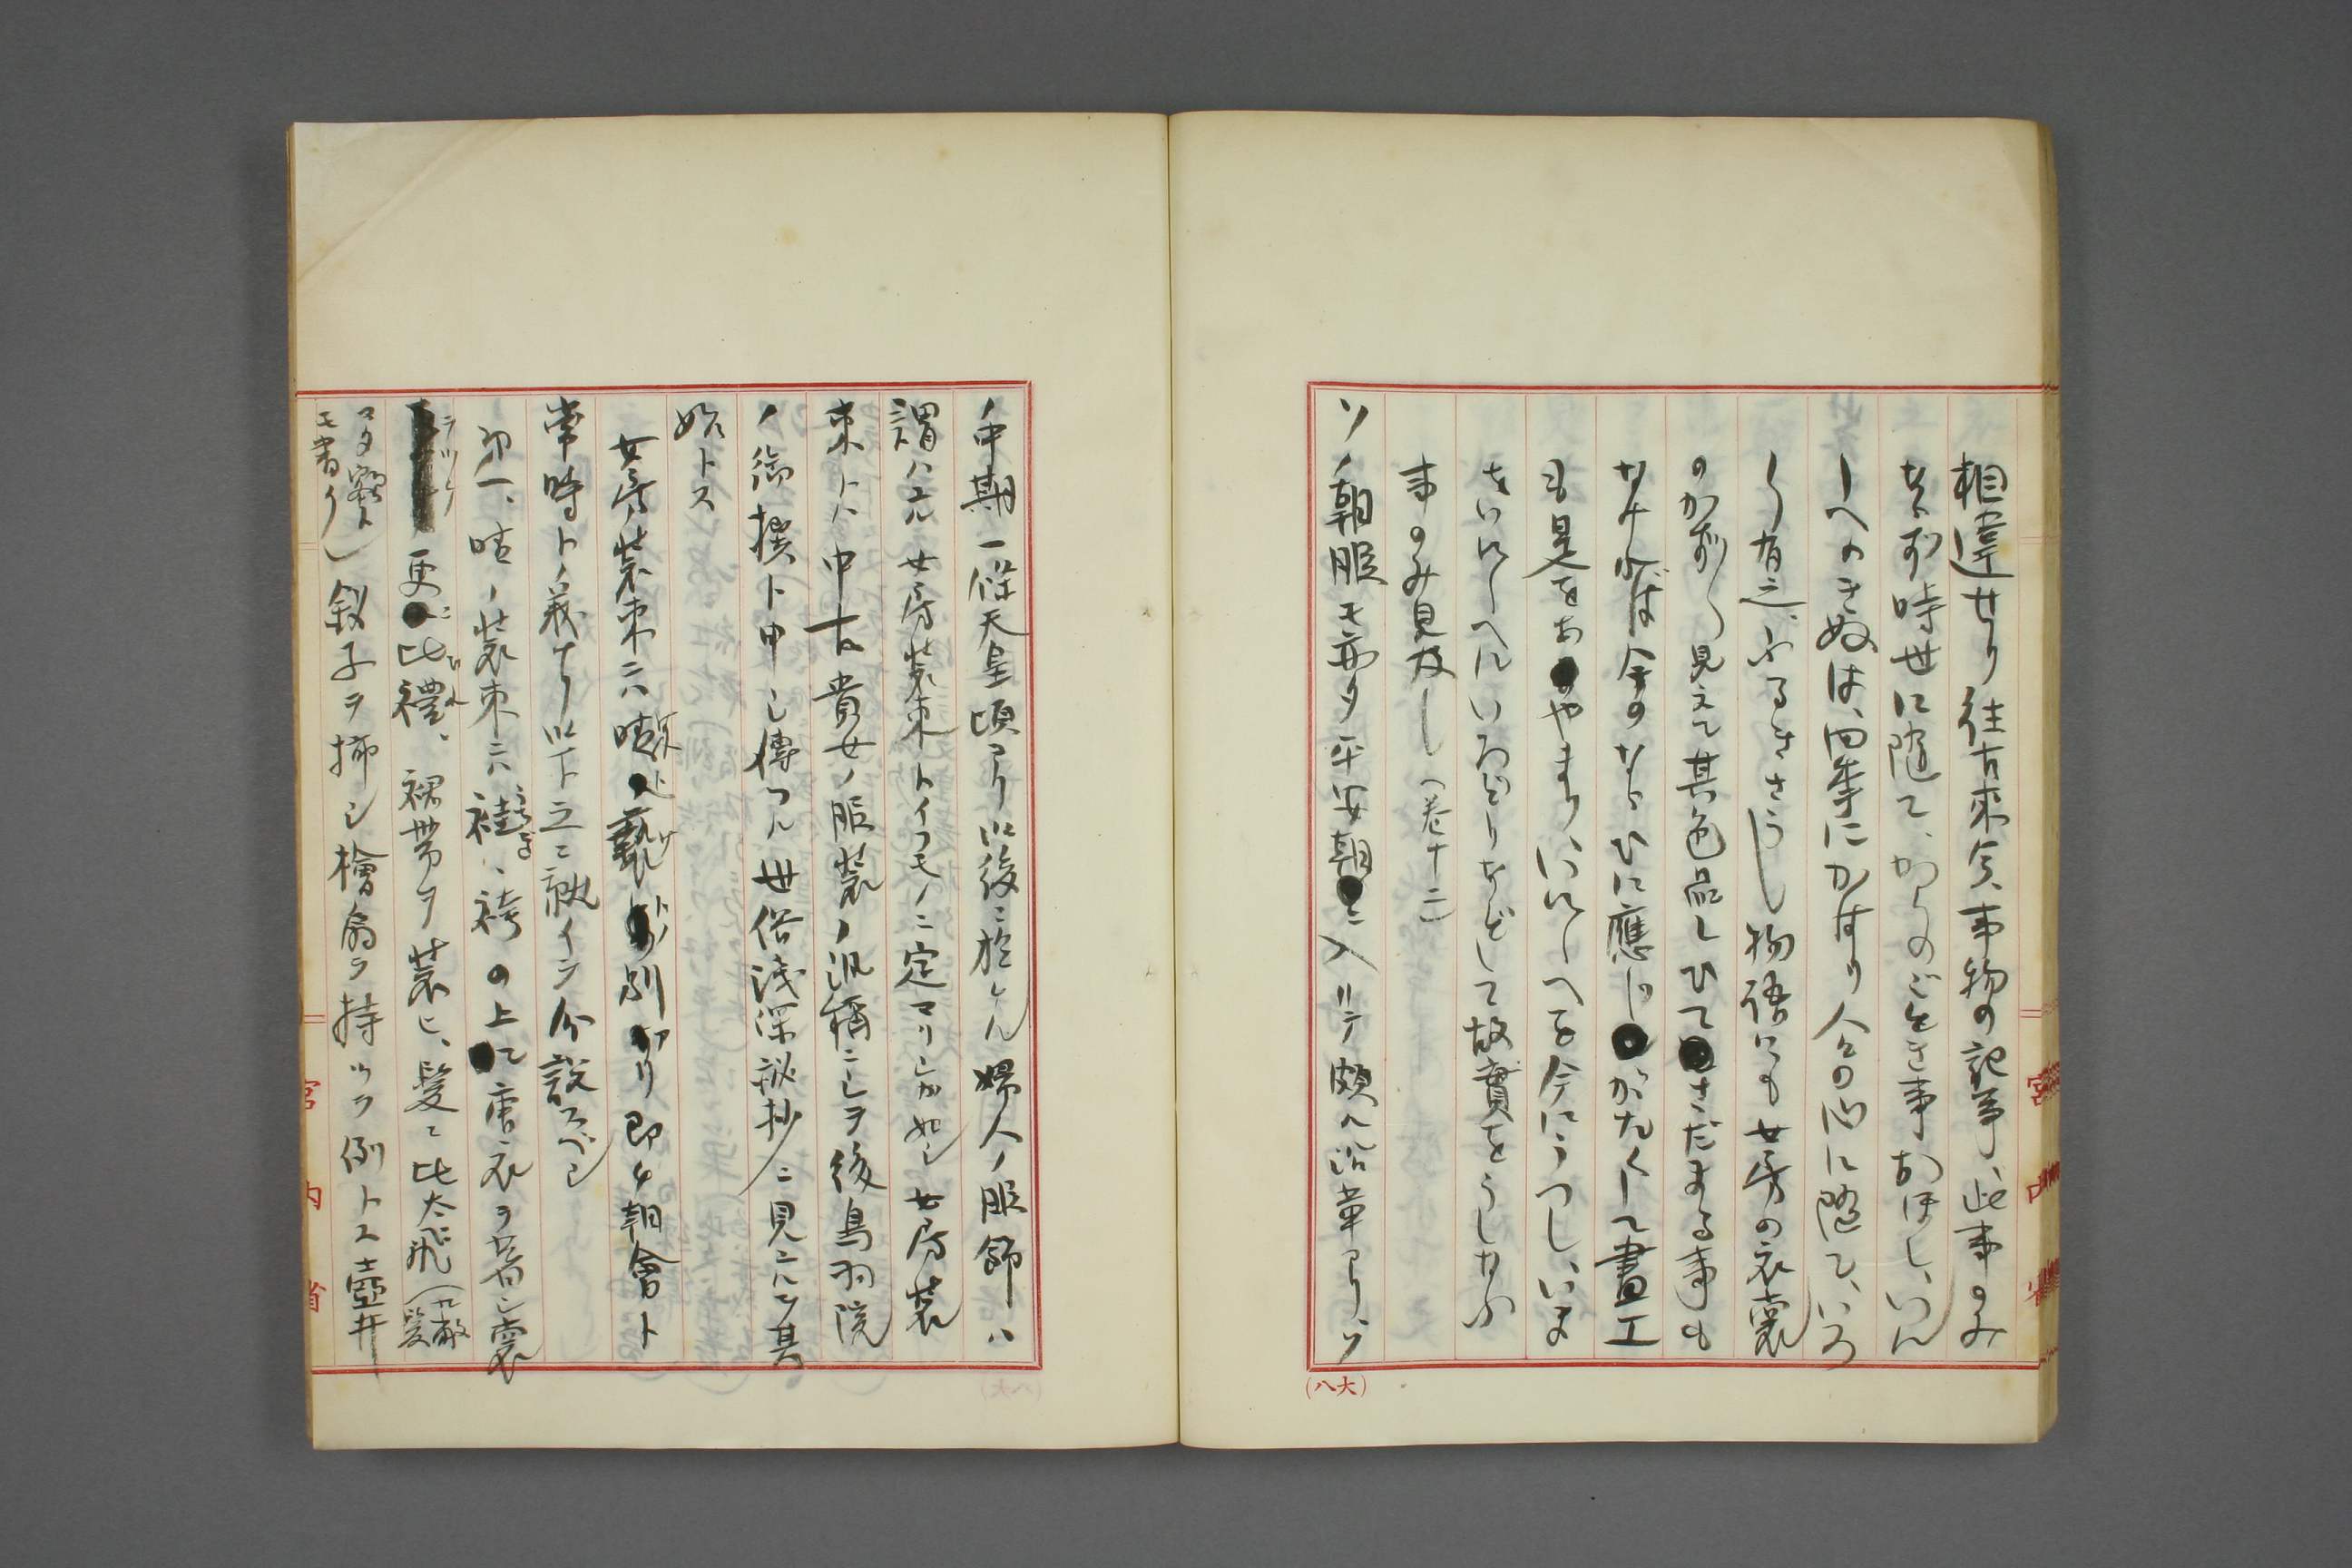 相違せり往古来今、事物の記事、此事のみ
ならず時世に随て、かくのごとき事おほし、いに
しへのきぬは、四季にかはり人々の心に随て、いろ
〱有之、ふるきさうし物語にも女房の衣裳
のかず〱見えて其色品しひてさだまる事も
なければ今のならひに應じがたくして畫工
も是をあやまり、いにしへを今にうつし、いま
をいにしへにいろどりなどして故實をうしなふ
事のみ見及し(巻十二)
ソノ朝服モ亦タ平安朝ニ入リテ頗ル沿革アリ、ソ
ノ中期一條天皇頃ヨリ以後ニ於ケル婦人ノ服飾ハ
謂ハユル女房装束トイフモノニ定マリシカ如シ女房装
束トハ中古貴女ノ服装ノ汎稱ニシテ後鳥羽院
ノ御撰ト申シ傳フル世俗浅深秘抄ニ見ユルヲ其
始トス
女房装束ニハ晴ト褻トノ別アリ即チ朝會ト
常時トノ義ナリ以下之ニ就イテ分説スベシ
第一、晴ノ装束ニハ袿、袴の上に唐衣ヲ着シ裳
ヲツケ更ニ比禮、裙帯ヲ装ヒ、髪ニ比太飛(九敝髪
マタ額トモ書ク)釵子ヲ挿シ檜扇ヲ持ツヲ例トス壺井
宮内省
(八大)